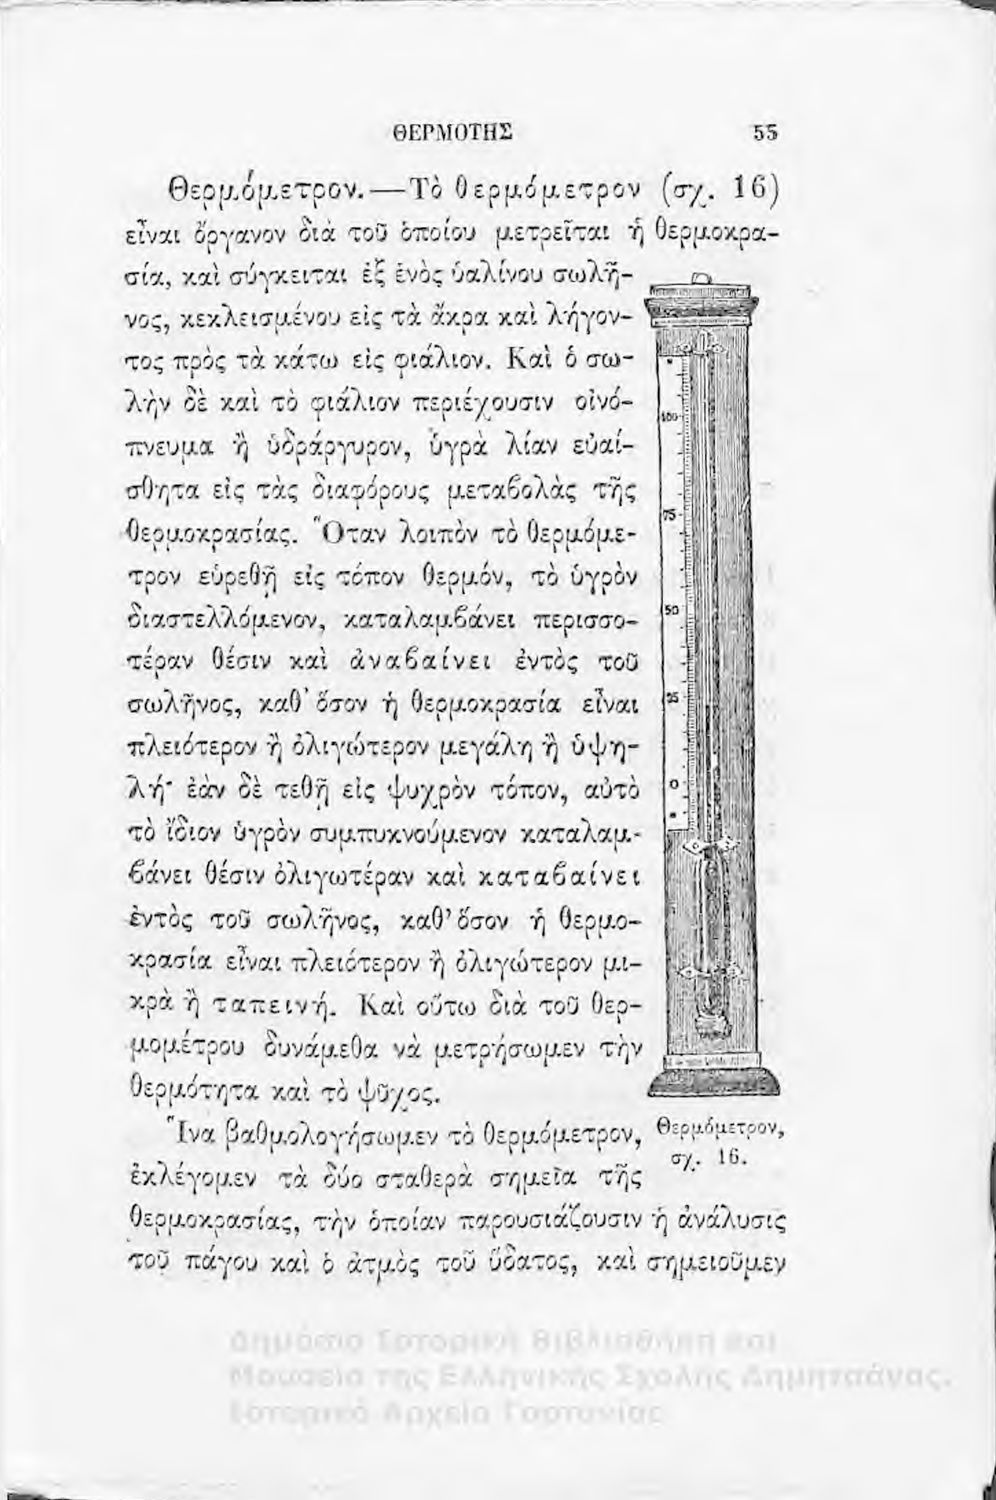 ΘΕΡΜΟΤΗΣ 55
Θερμόμετρον.—Τὸ θερμόμετρον (σχ. 16)
εἶναι ὄργανον διὰ τοῦ ὁποίου μετρεῖται ἡ θερμοκρα-
σία, καὶ σύγκειται ἐξ ἑνὸς ὑαλίνου σωλῆ-
νος, κεκλεισμένου εἰς τὰ ἄκρα καὶ λήγον-
τος πρὸς τὰ κάτω εἰς φιάλιον. Καὶ ὁ σω-
λὴν δὲ καὶ τὸ φιάλιον περιέχουσιν οἰνό-
πνευμα ἢ ὑδράργυρον, ὑγρὰ λίαν εὐαί-
σθητα εἰς τὰς διαφόρους μεταβολὰς τῆς
θερμοκρασίας. Ὅταν λοιπὸν τὸ θερμόμε-
τρον εὑρεθῇ εἰς τόπον θερμόν, τὸ ὑγρὸν
διαστελλόμενον, καταλαμβάνει περισσο-
τέραν θέσιν καὶ ἀναβαίνει ἐντὸς τοῦ
σωλῆνος, καθ' ὅσον ἡ θερμοκρασία εἶναι
πλειότερον ἢ ὀλιγώτερον μεγάλη ἢ ὑψη-
λή· ἐὰν δὲ τεθῇ εἰς ψυχρὸν τόπον, αὐτὸ
τὸ ἴδιον ὑγρὸν συμπυκνούμενον καταλαμ-
βάνει θέσιν ὀλιγωτέραν καὶ καταβαίνει
ἐντὸς τοῦ σωλῆνος, καθ' ὅσον ἡ θερμο-
κρασία εἶναι πλειότερον ἢ ὀλιγώτερον μι-
κρὰ ἢ ταπεινή. Καὶ οὕτω διὰ τοῦ θερ-
μομέτρου δυνάμεθα νὰ μετρήσωμεν τὴν
θερμότητα καὶ τὸ ψῦχος.
Ἵνα βαθμολογήσωμεν τὸ θερμόμετρον,
ἐκλέγομεν τὰ δύο σταθερὰ σημεῖα τῆς
θερμοκρασίας, τὴν ὁποίαν παρουσιάζουσιν ἡ ἀνάλυσις
τοῦ πάγου καὶ ὁ ἀτμὸς τοῦ ὕδατος, καὶ σημειοῦμεν
100
75
50
25
0
Θερμόμετρον,
σχ. 16.
Δημόσια Ιστορική Βιβλιοθήκη και
Μουσείο της Ελληνικής Σχολής Δημητσάνας.
Ιστορικό Αρχείο Γορτυνίας